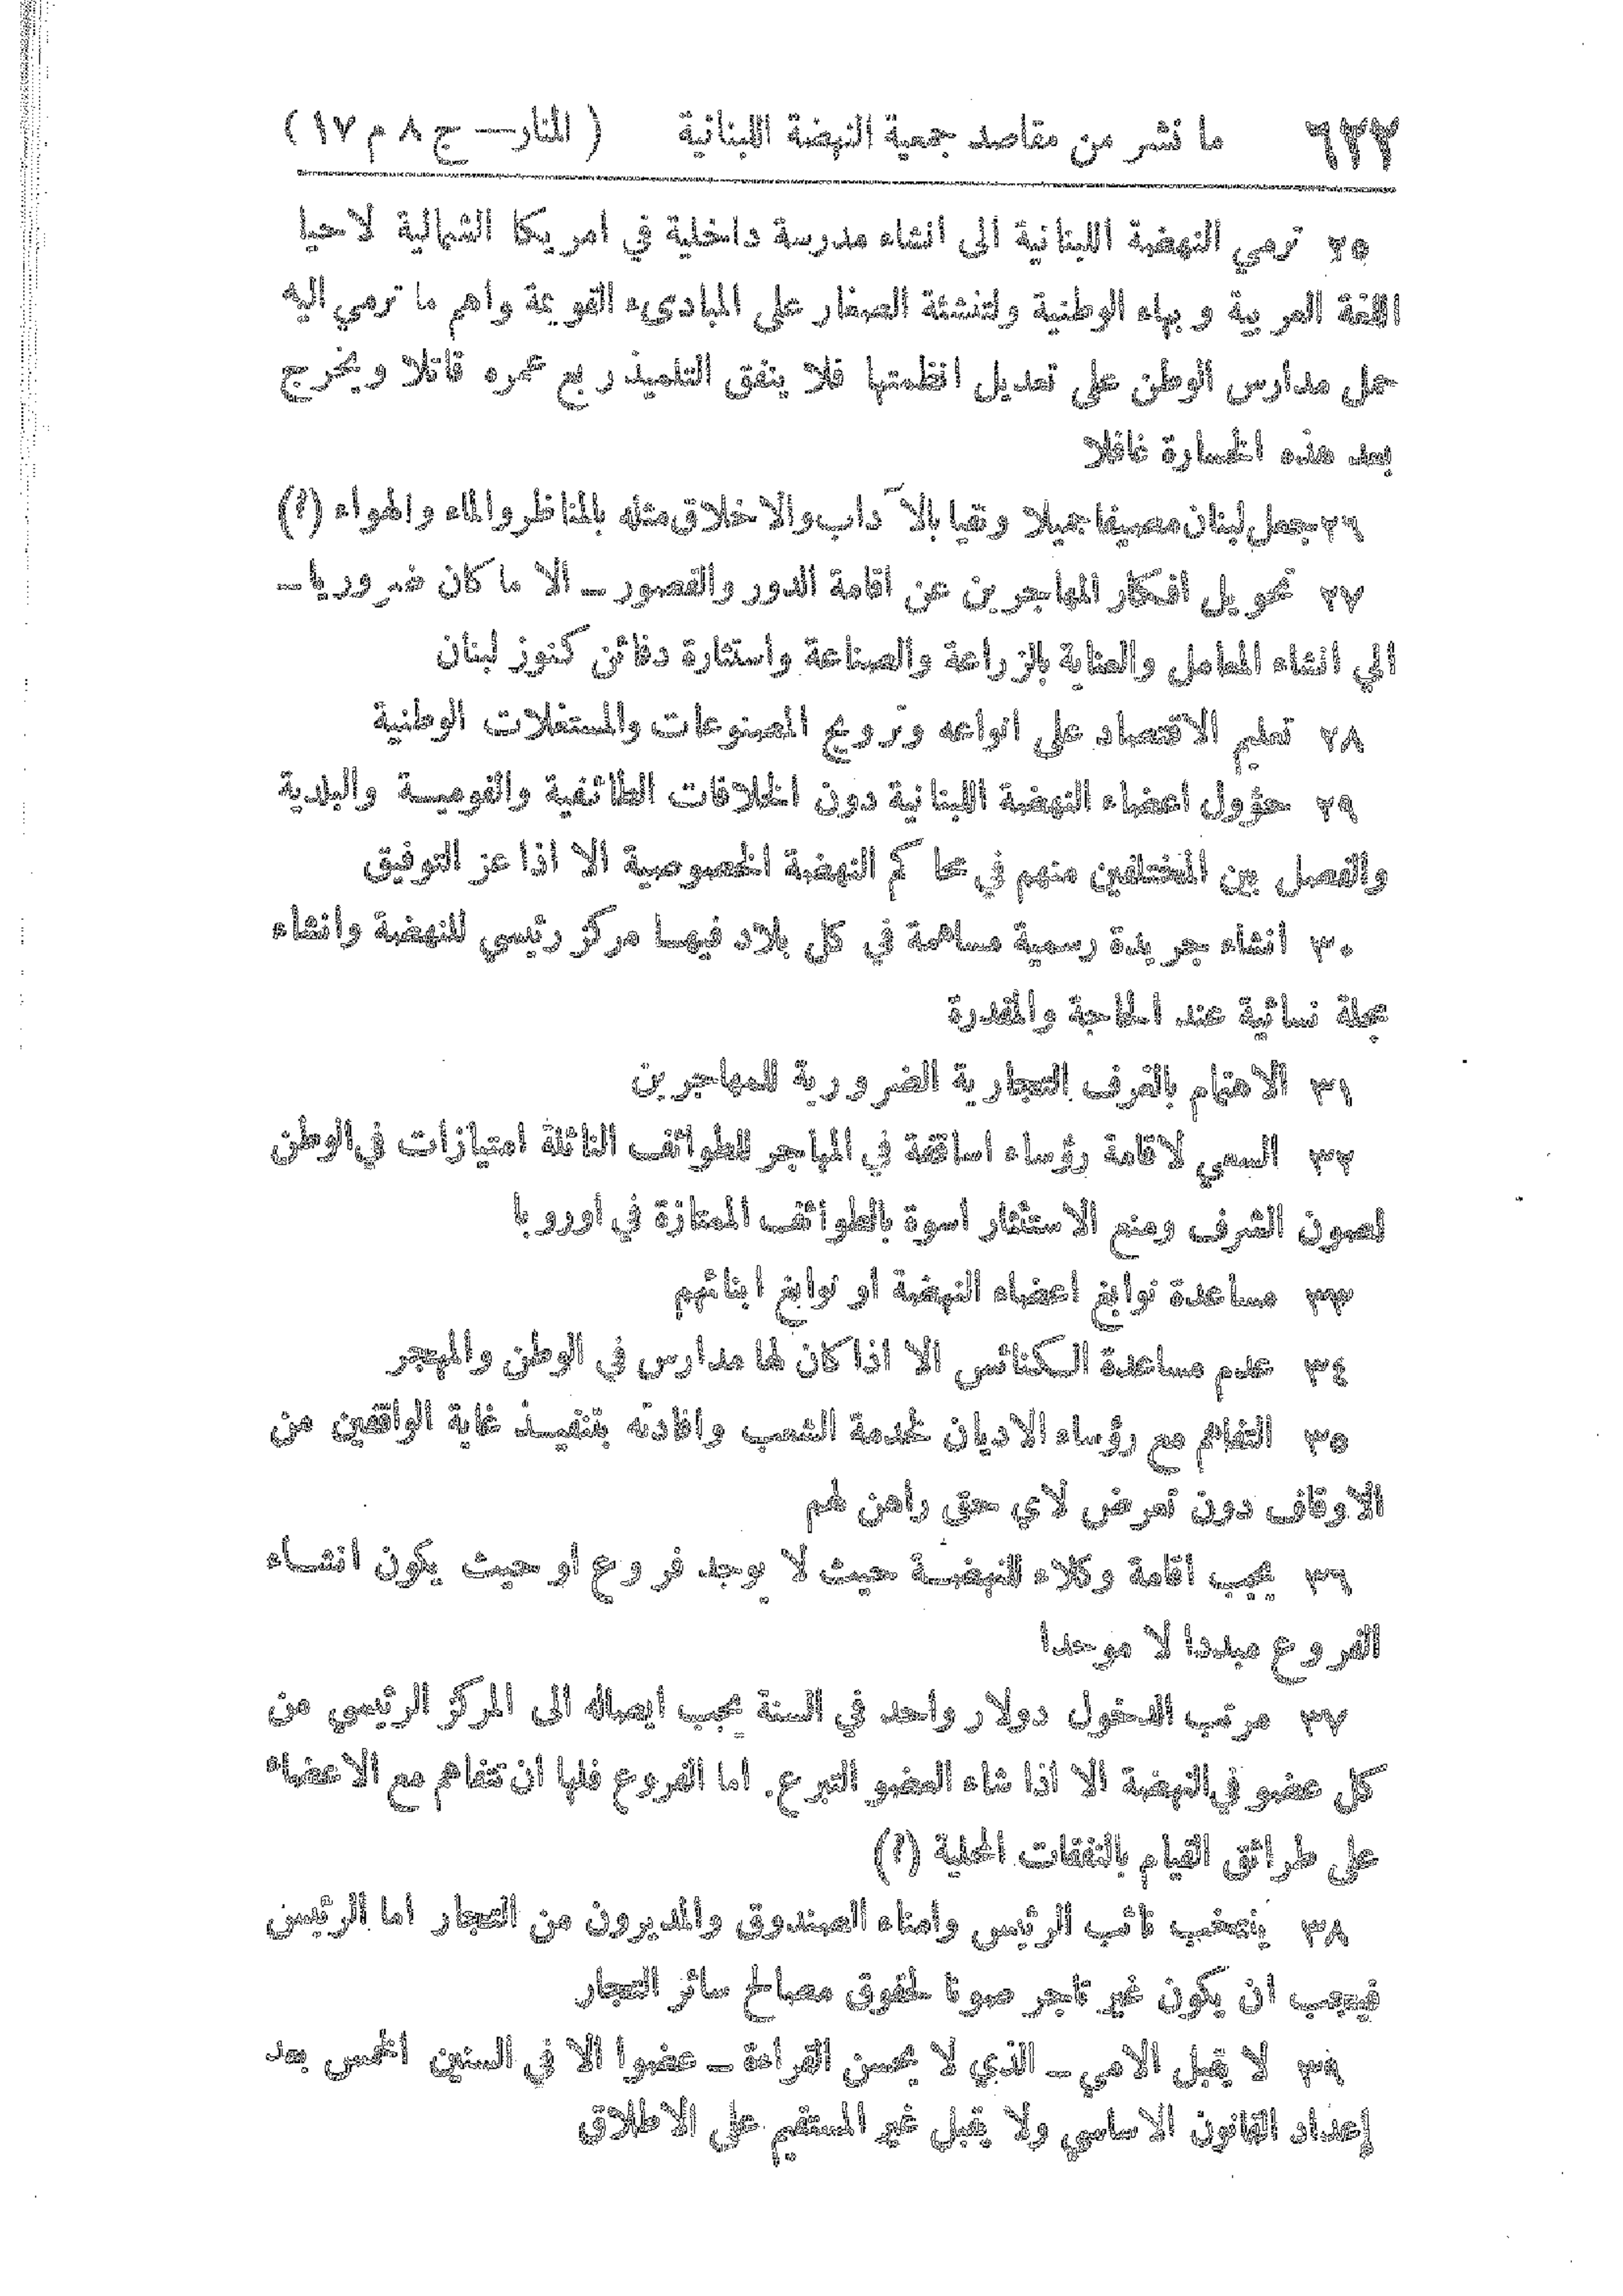 ٦٢٢ ما نشر من مقاصد جمعية النهضة اللبنانية ( المنار — ج ٨ م ١٧ )
٢٥ ترمي النهضة اللبنانية الى انشاء مدرسة داخلية في امريكا الشمالية لاحيا
اللغة العربية و بهاء الوطنية ولتنشئة الصغار على المبادىء القويمة واهم ما ترمي اليه
حمل مدارس الوطن على تعديل انظمتها فلا ينفق التلميذ ربع عمره قائلا ويخرج
بعد هذه الخسارة غافلا
٢٦ جعل لبنان مصيفا جميلا ونقيا بالآداب والاخلاق مثله بالمناظر والماء والهواء (؟)
٢٧ تحويل افكار المهاجرين عن اقامة الدور والقصور ــ الا ما كان ضروريا ــ
الي انشاء المعامل والعناية بالزراعة والصناعة واستثارة دفائن كنوز لبنان
٢٨ تعليم الاقتصاد على انواعه وترويج المصنوعات والمستغلات الوطنية
٢٩ حؤول اعضاء النهضة اللبنانية دون الخلافات الطائفية والقوميـة والبلدية
والفصل بين المختلفين منهم في محاكم النهضة الخصوصية الا اذا عز التوفيق
٣٠ انشاء جريدة رسمية مساهمة في كل بلاد فيهـا مركز رئيسي للنهضة وانشاء
مجلة نسائية عند الحاجة والمقدرة
٣١ الاهتمام بالغرف التجارية الضرورية للمهاجرين
٣٢ السعي لاقامة رؤساء اساقفة في المهاجر للطوائف النائلة امتيازات في الوطن
لصون الشرف ومنع الاستئثار اسوة بالطوائف الممتازة في اوروبا
٣٣ مساعدة نوابغ اعضاء النهضة او نوابغ ابنائهم
٣٤ عدم مساعدة الكنائس الا اذا كان لها مدارس في الوطن والمهجر
٣٥ التفاهم مع رؤساء الاديان لخدمة الشعب وافادته بتنفيـذ غاية الواقفين من
الاوقاف دون تعرض لاي حق راهن لهم
٣٦ يجب اقامة وكلاء للنهضـة حيث لا يوجد فروع او حيث يكون انشـاء
الفروع مبددا لا موحدا
٣٧ مرتب الدخول دولار واحد في السنة يجب ايصاله الى المركز الرئيسي من
كل عضو في النهضة الا اذا شاء العضو التبرع. اما الفروع فلها ان تتفاهم مع الاعضاء
على طرائق القيام بالنفقات المحلية (؟)
٣٨ ينتخب نائب الرئيس وامناء الصندوق والمديرون من التجار اما الرئيس
فيجب ان يكون غير تاجر صونا لحقوق مصالح سائر التجار
٣٩ لا يقبل الامي ــ الذي لا يحسن القراءة ــ عضوا الا في السنين الخمس بعد
إعداد القانون الاساسي ولا يقبل غير المستقيم على الاطلاق